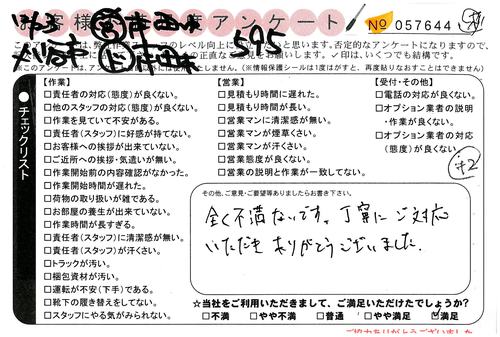 お客様満足度アンケート
No 057644
595
このアンケートは、弊社作業スタッフのレベル向上に
と思います。否定的なアンケートになりますので、
の正直なご意見をお願いします。✓印は、いくつでも結構です。
(※情報保護シールは1度はがすと、再度貼りなおすことはできません)
●チェックリスト
【作業】
□責任者の対応(態度)が良くない。
□他のスタッフの対応(態度)が良くない。
□作業を見ていて不安がある。
□責任者(スタッフ)に好感が持てない。
□お客様への挨拶が出来ていない。
□ご近所への挨拶・気遣いが無い。
□作業開始前の内容確認がなかった。
□作業開始時間が遅れた。
□荷物の取り扱いが雑である。
□お部屋の養生が出来ていない。
□作業時間が長すぎる。
□責任者(スタッフ)に清潔感が無い。
□責任者(スタッフ)が汗くさい。
□トラックが汚い。
□梱包資材が汚い。
□運転が不安(下手)である。
□靴下の履き替えをしてない。
□スタッフにやる気がみられない。
【営業】
□見積もり時間に遅れた。
□見積もり時間が長い。
□営業マンに清潔感が無い。
□営業マンが煙草くさい。
□営業マンが汗くさい。
□営業態度が良くない。
□営業の説明と作業が一致してない。
【受付・その他】
□電話の対応が良くない。
□オプション業者の説明
・作業が良くない。
□オプション業者の対応
(態度)が良くない。
その他、ご意見・ご要望等ありましたらお書き下さい。
全く不満ないです。丁寧にご対応
いただき ありがとうございました。
☆当社をご利用いただきまして、ご満足いただけたでしょうか?
□不満 □やや不満 □普通 □やや満足 ☑満足
ご協力ありがとうございました